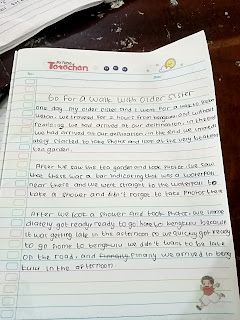 Totochan
Go For a Walk With Older Sister
one day, my older sister and I went for a walk to
vation, we traveled for 2 hours from bengkulu and without
realizing we had arrived at our destination, in the end
we had arrived at our destination, in the end we immedi
ately started to take Photos and look at the very beautiful
tea garden.
After we saw the tea garden and took Photos, we saw
that there was a bar indicating that was a waterfall
near there and we went straight to the waterfall to
take a shower and didn't forget to take Photos there
After we took a shower and took Photos, we imme
diately got ready, ready to go home to bengkulu because
it was getting late in the afternoon so we quickly got ready
to go home to bengkulu we didn't want to be late
on the road, and Finally we arrived in beng
kulu in the afternoon